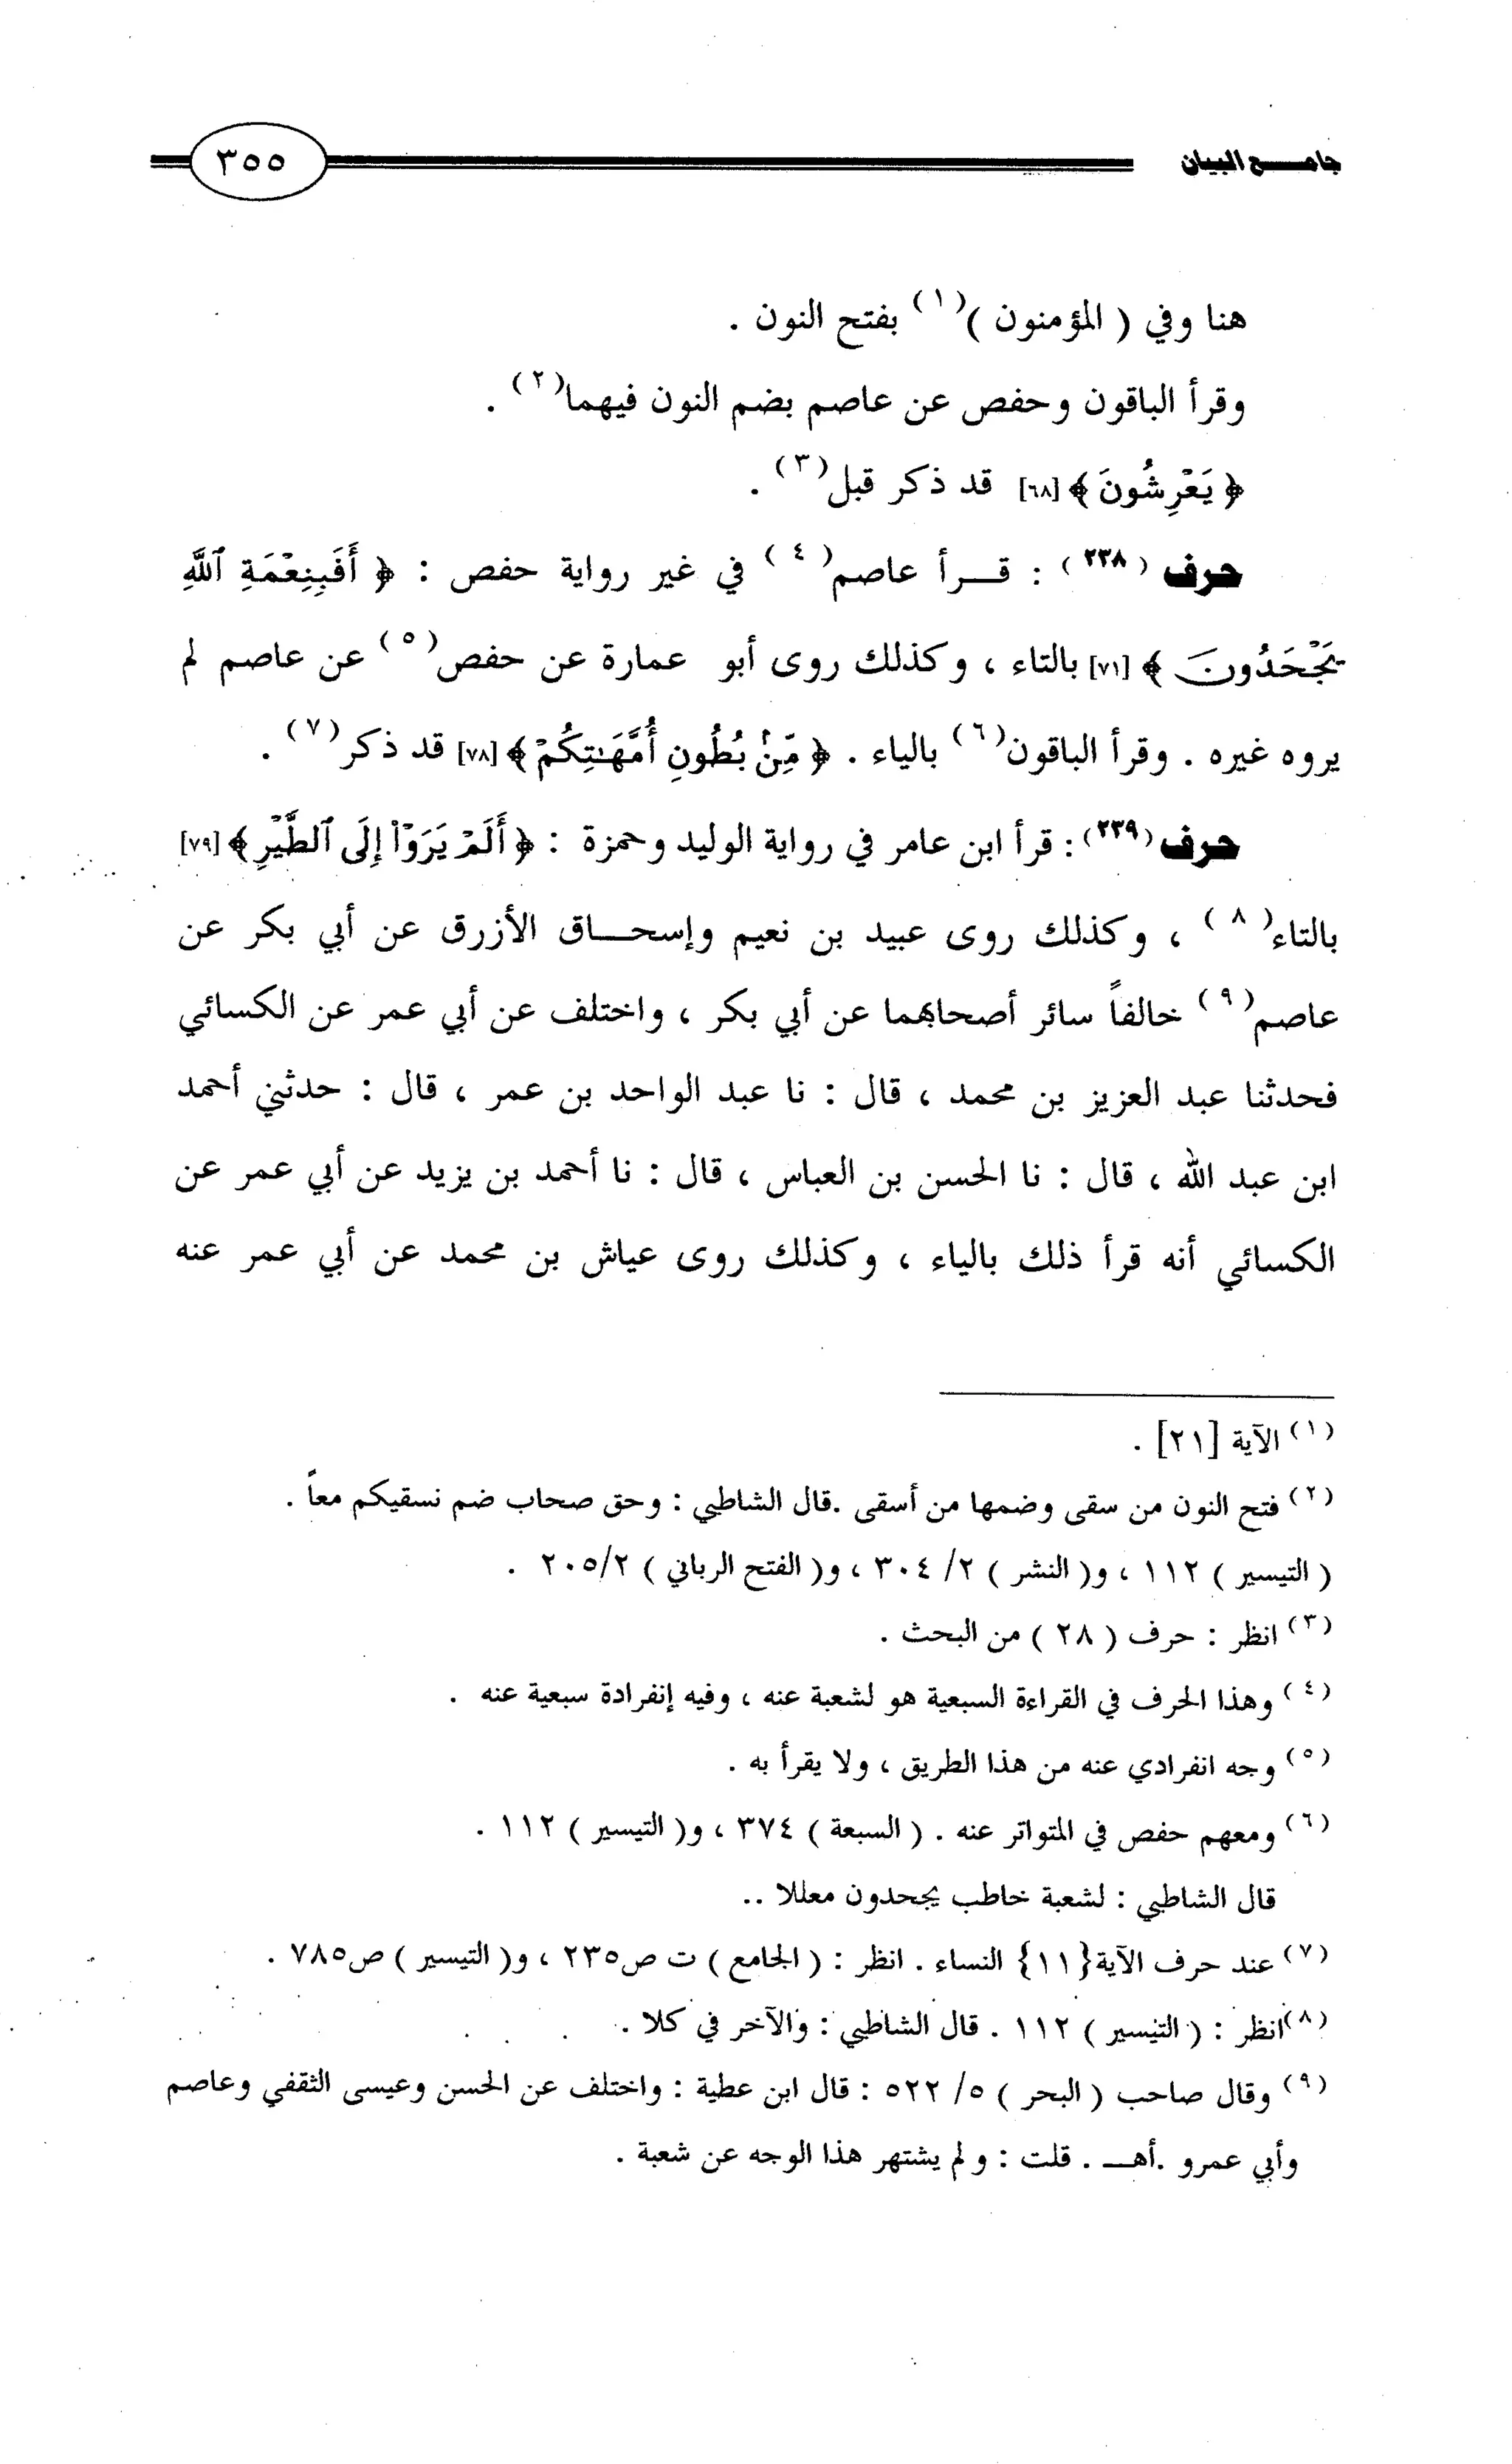 جامـــع البيان
٣٥٥
هنا وفي ( المؤمنون )(١) بفتح النون .
وقرأ الباقون وحفص عن عاصم بضم النون فيهما(٢) .
﴿ يَعْرِشُونَ ﴾[٦٨] قد ذكر قبل(٣) .
حرف (٢٣٨) : قـــرأ عاصم(٤) في غير رواية حفص : ﴿ أَفَبِنِعْمَةِ ٱللَّهِ
يَجْحَدُونَ ﴾[٧١] بالتاء ، وكذلك روى أبو عمارة عن حفص(٥) عن عاصم لم
يروه غيره . وقرأ الباقون(٦) بالياء . ﴿ مِّنۢ بُطُونِ أُمَّهَٰتِكُمْ ﴾[٧٨] قد ذكر(٧) .
حرف(٢٣٩) : قرأ ابن عامر في رواية الوليد وحمزة : ﴿ أَلَمْ يَرَوْا۟ إِلَى ٱلطَّيْرِ ﴾[٧٩]
بالتاء(٨) ، وكذلك روى عبيد بن نعيم وإسحـــاق الأزرق عن أبي بكر عن
عاصم(٩) خالفاً سائر أصحابهما عن أبي بكر ، واختلف عن أبي عمر عن الكسائي
فحدثنا عبد العزيز بن محمد ، قال : نا عبد الواحد بن عمر ، قال : حدثني أحمد
ابن عبد الله ، قال : نا الحسن بن العباس ، قال : نا أحمد بن يزيد عن أبي عمر عن
الكسائي أنه قرأ ذلك بالياء ، وكذلك روى عياش بن محمد عن أبي عمر عنه
(١) الآية [٢١] .
(٢) فتح النون من سقى وضمها من أسقى .قال الشاطبي : وحق صحاب ضم نسقيكم معاً .
( التيسير ) ١١٢ ، و( النشر ) ٢/ ٣٠٤ ، و( الفتح الرباني ) ٢٠٥/٢ .
(٣) انظر : حرف ( ٢٨ ) من البحث .
(٤) وهذا الحرف في القراءة السبعية هو لشعبة عنه ، وفيه إنفرادة سبعية عنه .
(٥) وجه انفرادي عنه من هذا الطريق ، ولا يقرأ به .
(٦) ومعهم حفص في المتواتر عنه . ( السبعة ) ٣٧٤ ، و( التيسير ) ١١٢ .
قال الشاطبي : لشعبة خاطب يجحدون معللا ..
(٧) عند حرف الآية{١١} النساء . انظر : ( الجامع ) ت ص٢٣٥ ، و( التيسير ) ص٧٨٥ .
(٨)انظر : ( التيسير ) ١١٢ . قال الشاطبي : والآخر في كلا .
(٩) وقال صاحب ( البحر ) ٥/ ٥٢٢ : قال ابن عطية : واختلف عن الحسن وعيسى الثقفي وعاصم
وأبي عمرو .أهـــ . قلت : و لم يشتهر هذا الوجه عن شعبة .